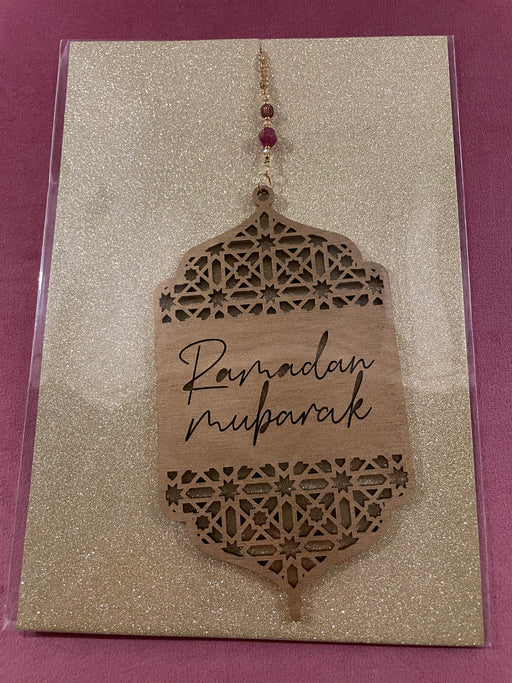 Ramadan
mubarak